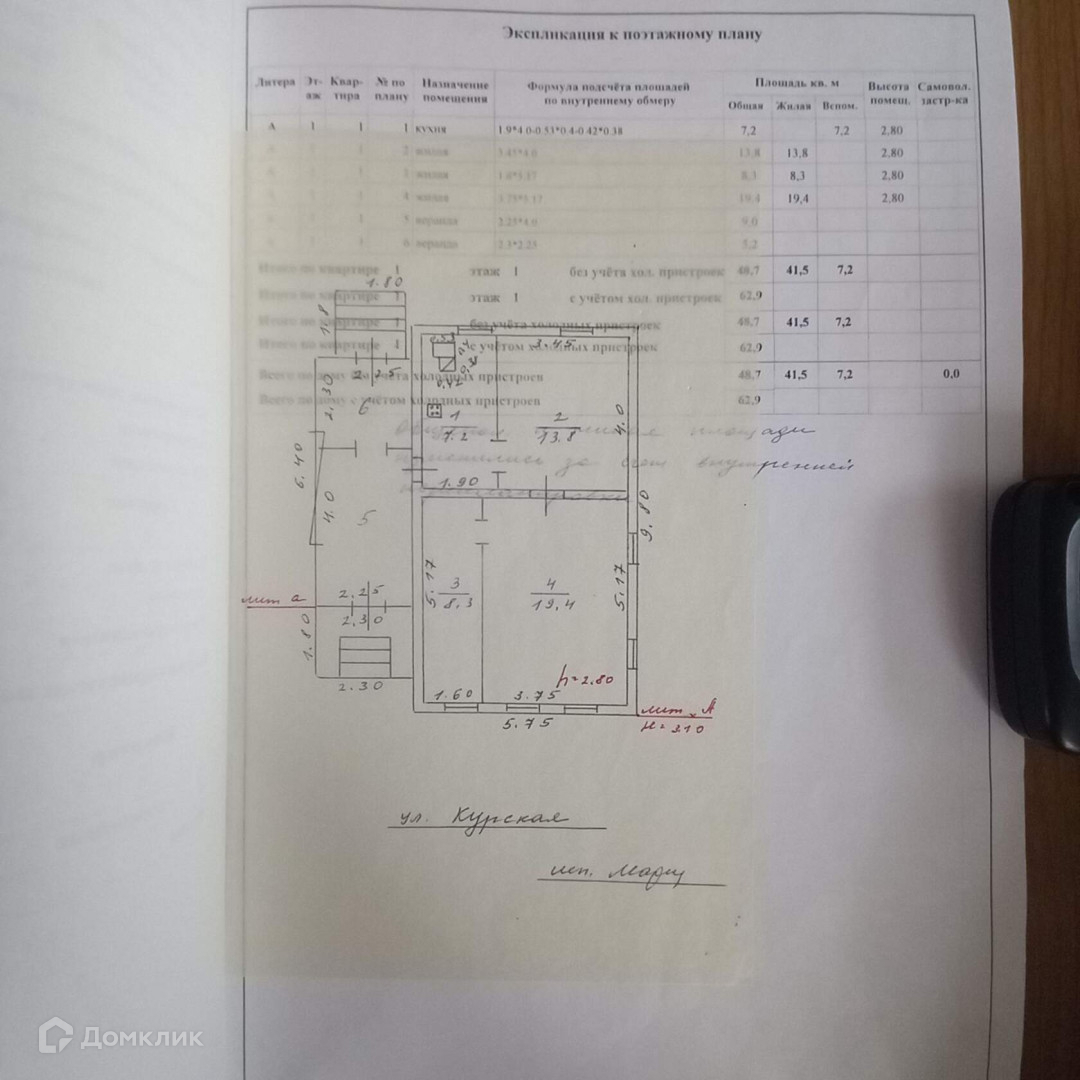 Экспликация к поэтажному плану
Литера Эт-аж Квар-тира № по плану Назначение помещения Формула подсчёта площадей по внутреннему обмеру Площадь кв. м Высота помещ. Самовол. застр-ка
Общая Жилая Вспом.
А 1 1 1 кухня 1.9*4.0-0.53*0.4-0.42*0.38 7,2 7,2 2,80
1 2 жилая 3.45*4.0 13,8 13,8 2,80
1 3 жилая 1.6*5.17 8,3 8,3 2,80
1 4 жилая 3.75*5.17 19,4 19,4 2,80
1 5 веранда 2.25*4.0 9,0
1 6 веранда 2.3*2.25 5,2
Итого по квартире 1 этаж 1 без учёта хол. пристроек 48,7 41,5 7,2
Итого по квартире 1 этаж 1 с учётом хол. пристроек 62,9
Итого по квартире 1 без учёта холодных пристроек 48,7 41,5 7,2
Итого по квартире 1 с учётом холодных пристроек 62,9
Всего по дому без учёта холодных пристроек 48,7 41,5 7,2 0,0
Всего по дому с учётом холодных пристроек 62,9
площади
за счет внутренней
перепланировки
1.80
1.8
0.53
3.45
0.42
2.25
2.30
6
1
7.2
2
13.8
4.0
6.40
4.0
5
1.90
9.80
5.17
3
8.3
4
19.4
5.17
лит а
2.25
2.30
1.80
2.30
h=2.80
1.60
3.75
5.75
лит А
H=3.10
ул. Курская
исп. Марц
Домклик